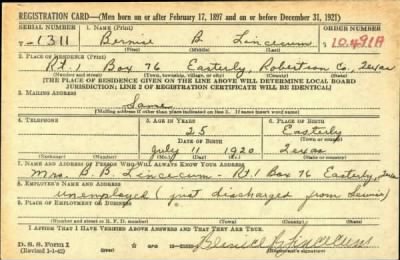 REGISTRATION CARD—(Men born on or after February 17, 1897 and on or before December 31, 1921)
SERIAL NUMBER 1. NAME (Print) ORDER NUMBER
T-1311 Bernise B. Lincecum 10491A
(First) (Middle) (Last)
2. PLACE OF RESIDENCE (Print)
Rt. 1 Box 76 Easterly, Robertson Co., Texas
(Number and street) (Town, township, village, or city) (County) (State)
[THE PLACE OF RESIDENCE GIVEN ON THE LINE ABOVE WILL DETERMINE LOCAL BOARD
JURISDICTION; LINE 2 OF REGISTRATION CERTIFICATE WILL BE IDENTICAL]
3. MAILING ADDRESS
Same
[Mailing address if other than place indicated on line 2. If same insert word same]
4. TELEPHONE 5. AGE IN YEARS 6. PLACE OF BIRTH
25 Easterly
DATE OF BIRTH (Town or county)
July 11 1920 Texas
(Exchange) (Number) (Mo.) (Day) (Yr.) (State or country)
7. NAME AND ADDRESS OF PERSON WHO WILL ALWAYS KNOW YOUR ADDRESS
Mrs. B. B. Lincecum - Rt. 1 Box 76 Easterly, Tex
8. EMPLOYER'S NAME AND ADDRESS
unemployed (just discharged from Service)
9. PLACE OF EMPLOYMENT OR BUSINESS
(Number and street or R. F. D. number) (Town) (County) (State)
I AFFIRM THAT I HAVE VERIFIED ABOVE ANSWERS AND THAT THEY ARE TRUE.
D. S. S. Form 1
(Revised 1-1-42) (over) Bernice B Lincecum
(Registrant's signature)